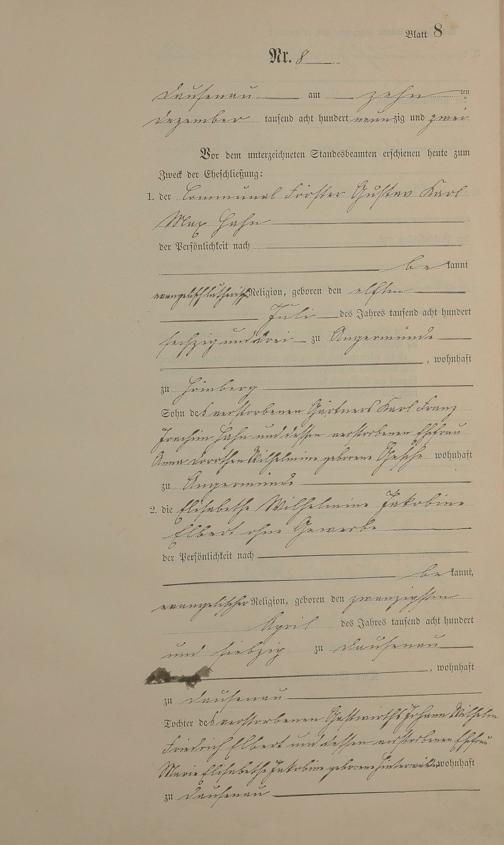 Blatt 8
Nr. 8
Dausenau am zehnten
Dezember tausend acht hundert neunzig und zwei
Vor dem unterzeichneten Standesbeamten erschienen heute zum
Zweck der Eheschließung:
1. der Communal Förster Gustav Karl
Max Hahn
der Persönlichkeit nach
bekannt
evangelischlutherisch Religion, geboren den elften
Juli des Jahres tausend acht hundert
sechzig und drei zu Angermünde
, wohnhaft
zu Homberg
Sohn des verstorbenen Gärtners Karl Franz
Joachim Hahn und dessen verstorbenen Ehefrau
Anna Dorothea Wilhelmine geborene wohnhaft
zu Angermünde
2. die Elisabethe Wilhelmine Jakobine
Elbert ohne Gewerbe
der Persönlichkeit nach
bekannt,
evangelischer Religion, geboren den zwanzigsten
April des Jahres tausend acht hundert
und siebzig zu Dausenau
, wohnhaft
zu Dausenau
Tochter des verstorbenen Gastwirths Johann Wilhelm
Friedrich Elbert und dessen verstorbenen Ehefrau
Marie Elisabethe Jakobine geborene wohnhaft
zu Dausenau